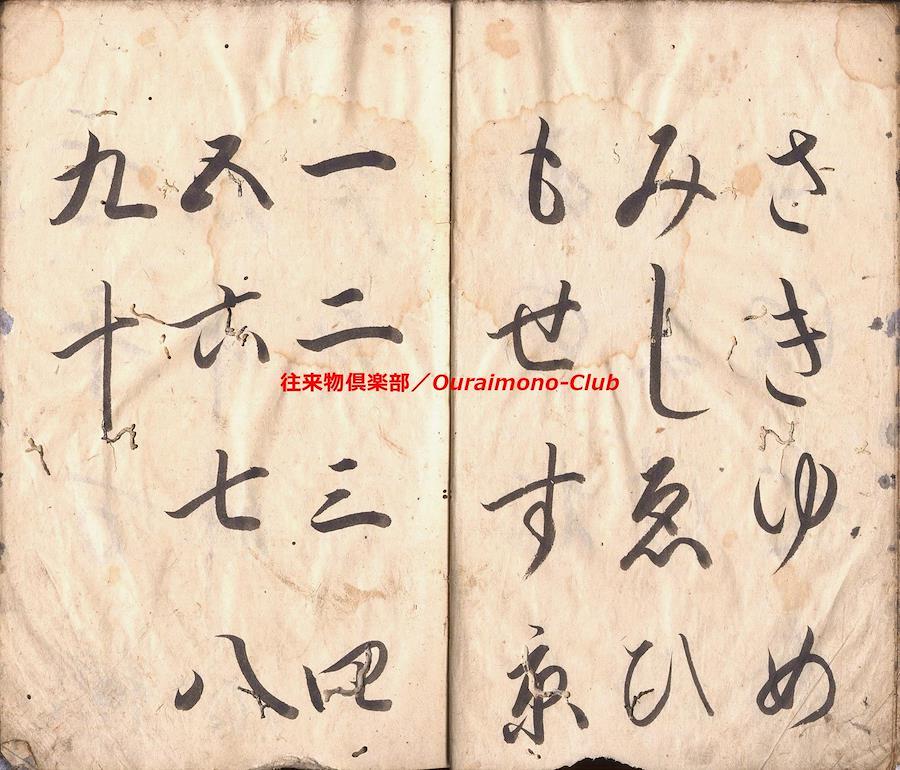 さきゆめ
みしゑひ
もせす京
一二三四
五六七八
九十
往来物倶楽部／Ouraimono-Club